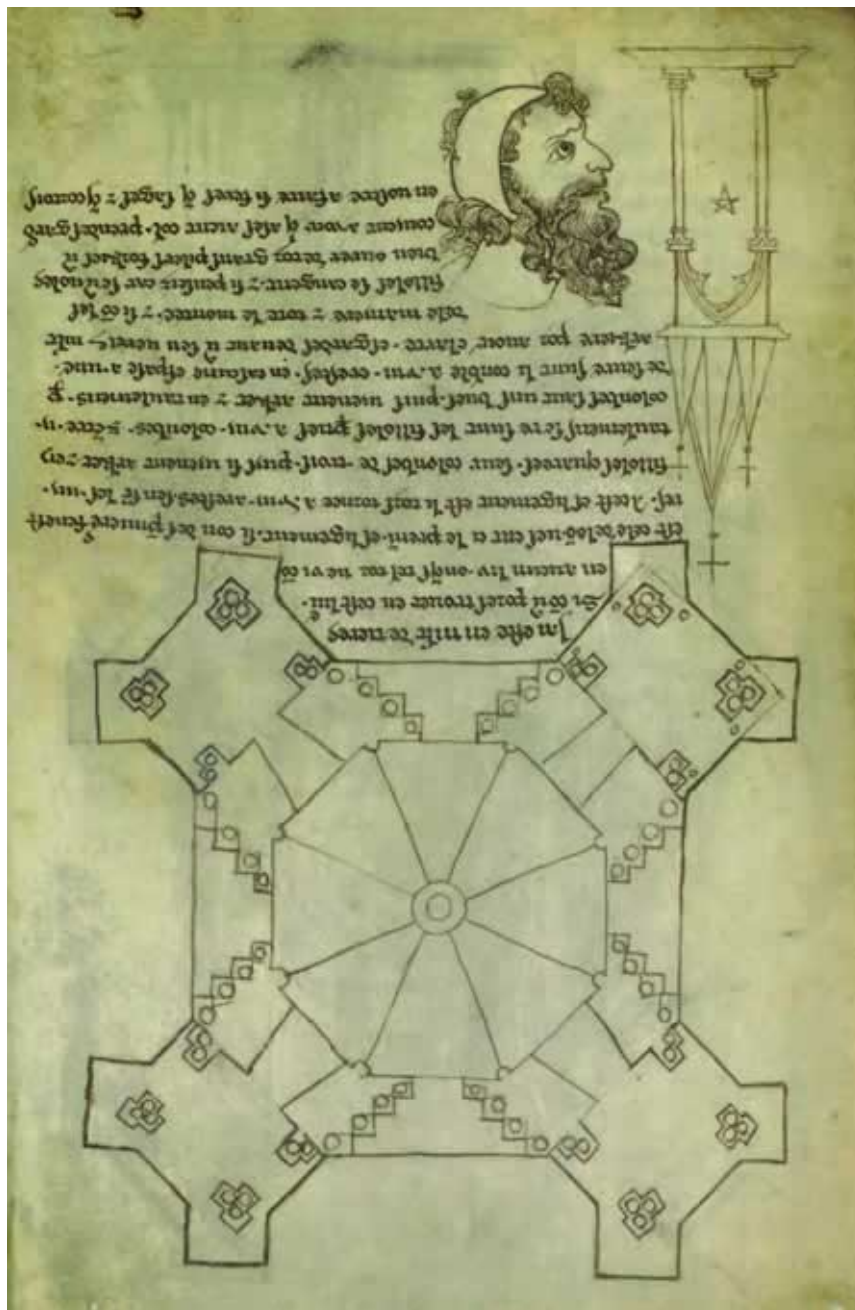 Jai este en mlt de tieres
Si cū v̄ porez trouer en cest liu͛e.
en aucun liu. onq̄s tel tor ne vi cō
est cele de loō ues ent ci le premī. eslegement. si con des p̄miere fenest
res. A cest eslegement est li tors tornee a .viii. arestes. sen st̄ les .iiii.
filloles quarees. seur colonbes de .trois. puis si uienent arket z en
taulemens se re sunt les filloles p̄ties a .viii. colonbes. z entre .ii.
colonbes saut uns buef. puis uienent arket z entaulemens. p̄
deseure sunt li conble a .viii. crestes. en cascune espase a une.
arkiere por auoir clarte. esgardes deuant ū sen uereis mlt
dele maniere z tote le montee. z si cō les
filloles se cangent. z si penseis car se uoles
bien ourer de toz grans pilers forkies ū
couient auoir q̄ ases aient col. prendes gard
en uostre afaire si feres q̄ sages z q̄ cortois